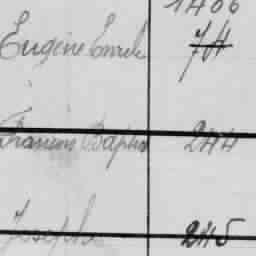 1406
Eugène Emile 74
Francis Baptis 244
Joseph 245